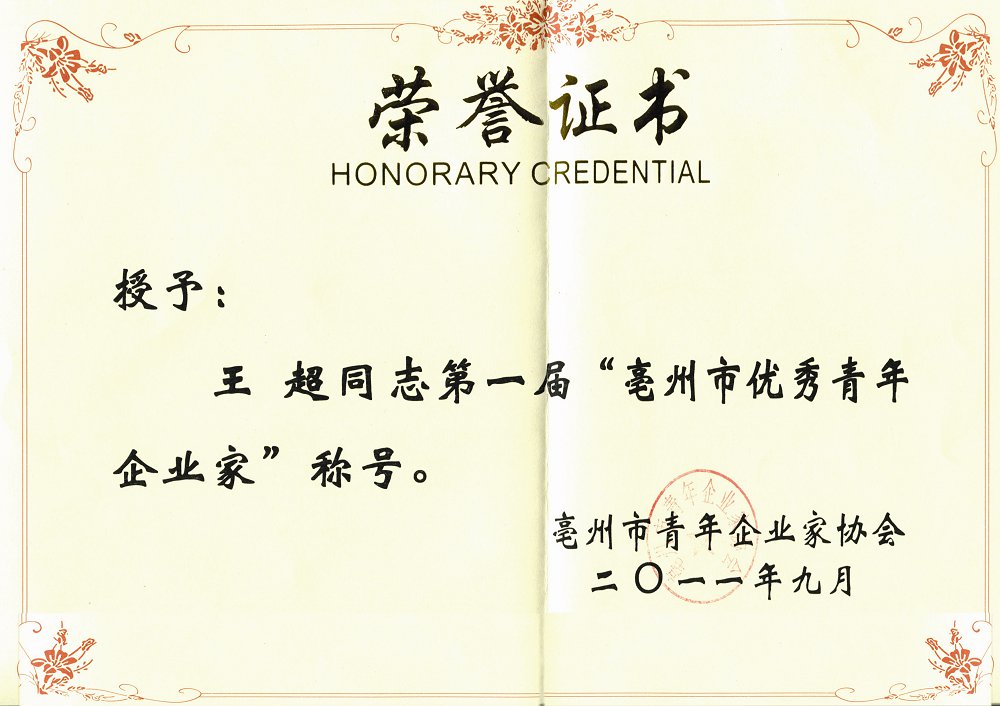 荣誉证书
HONORARY CREDENTIAL
授予：
王 超同志第一届“亳州市优秀青年
企业家”称号。
亳州市青年企业家协会
二〇一一年九月